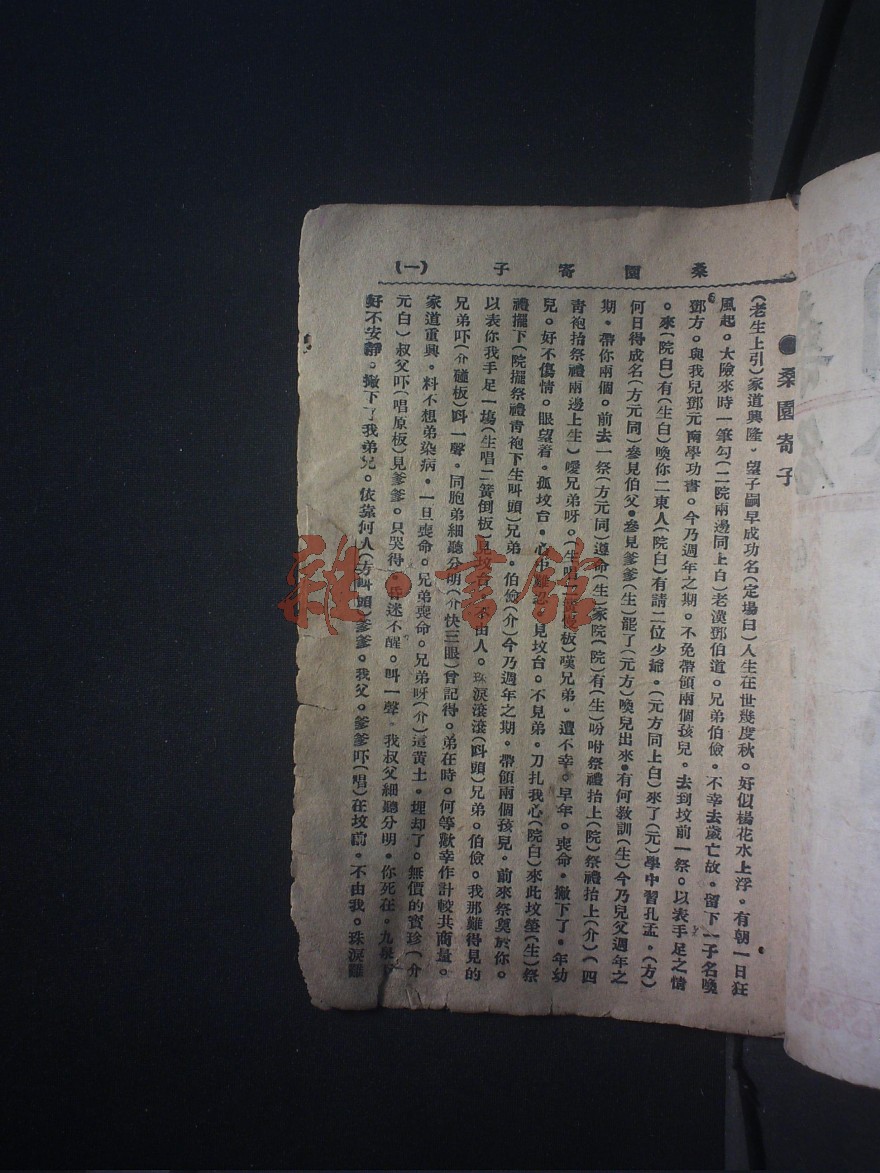 桑園寄子 (一)
●桑園寄子
(老生上引)家道興隆。望子嗣早成功名(定場白)人生在世幾度秋。好似楊花水上浮。有朝一日狂
風起。大險來時一筆勾(二院兩邊同上白)老漢鄧伯道。兄弟伯儉。不幸去歲亡故。留下一子名喚
鄧方。與我兒鄧元南學功書。今乃週年之期。不免帶領兩個孩兒。去到坟前一祭。以表手足之情
。來(院白)有(生白)喚你二東人(院白)有請二位少爺。(元方同上白)來了(元)學中習孔孟。(方)
何日得成名(方元同)參見伯父。參見爹爹(生)罷了(元方)喚兒出來。有何教訓(生)今乃兒父週年之
期。帶你兩個。前去一祭(方元同)遵命(生)家院(院)有(生)吩咐祭禮抬上(院)祭禮抬上(介)(四
青袍抬祭禮兩邊上生)嗳兄弟呀。(生唱二簧慢板)嘆兄弟。遭不幸。早年。喪命。撇下了。年幼
兒。好不傷情。眼望着。孤坟台。心中難忍。見坟台。不見弟。刀扎我心(院白)來此坟塋(生)祭
禮擺下(院擺祭禮青袍下生叫頭)兄弟。伯儉(介)今乃週年之期。帶領兩個孩兒。前來祭奠於你。
以表你我手足一塲(生唱二簧倒板)見坟台。不由人。珠淚滾滾(叫頭)兄弟。伯儉。我那難得見的
兄弟吓(介碰板)叫一聲。同胞弟細聽分明(介快三眼)曾記得。弟在時。何等歡幸作計較共商量。
家道重興。料不想弟染病。一旦喪命。兄弟喪命。兄弟呀(介)這黃土。埋却了。無價的寳珍(介
元白)叔父吓(唱原板)見爹爹。只哭得。昏迷不醒。叫一聲。我叔父細聽分明。你死在。九泉下
好不安靜。撇下了我弟兄。依靠何人(方叫頭)爹爹。我父。爹爹吓(唱)在坟前。不由我。珠淚難
雜·書館